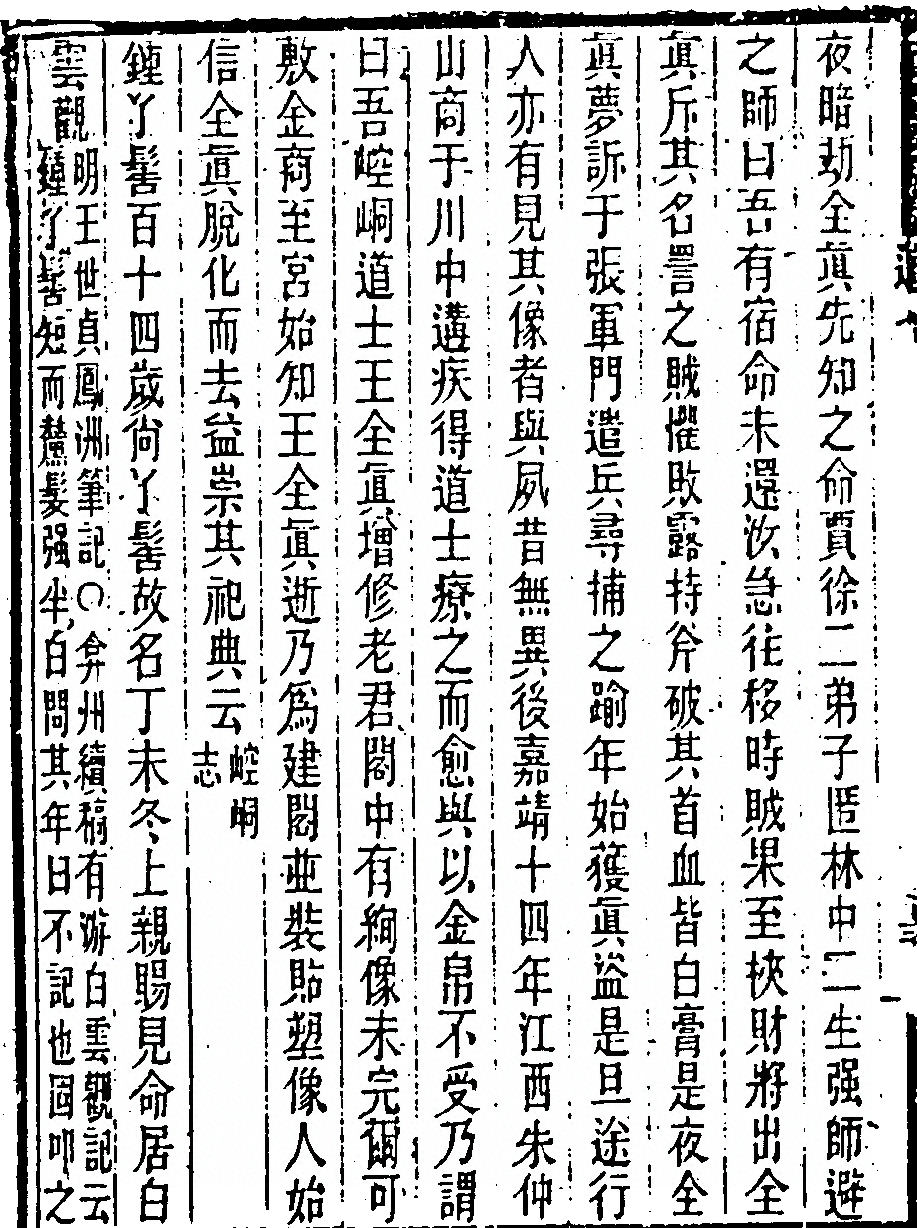 夜暗劫全眞先知之命賈徐二弟子匿林中二生强師避
之師曰吾有宿命未還汝急往移時賊果至挾財將出全
眞斥其名詈之賊懼敗露持斧破其首血皆白膏是夜全
眞夢訴于張軍門遣兵尋捕之踰年始獲眞盜是旦途行
人亦有見其像者與夙昔無異後嘉靖十四年江西朱仲
山商于川中遘疾得道士療之而愈與以金帛不受乃謂
曰吾崆峒道士王全眞增修老君閣中有絢像未完爾可
敷金商至宮始知王全眞逝乃爲建閣並裝貼塑像人始
信全眞脫化而去益崇其祀典云崆峒志
鍾了髻百十四歲尙丫髻故名丁未冬上親賜見命居白
雲觀明王世貞鳳洲筆記〇弇州續稿有游白雲觀記云
鍾了髻短而鬑髮强半白問其年日不記也固叩之